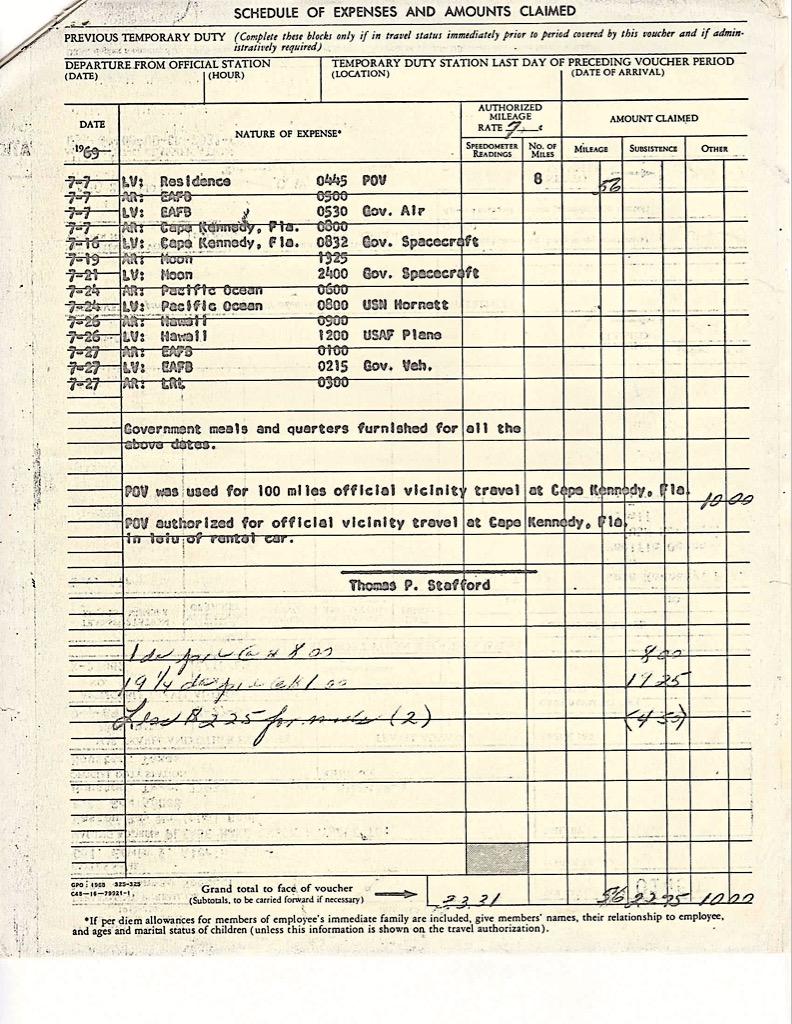 SCHEDULE OF EXPENSES AND AMOUNTS CLAIMED
PREVIOUS TEMPORARY DUTY (Complete these blocks only if in travel status immediately prior to period covered by this voucher and if admin-
istratively required)
DEPARTURE FROM OFFICIAL STATION TEMPORARY DUTY STATION LAST DAY OF PRECEDING VOUCHER PERIOD
(DATE) (HOUR) (LOCATION) (DATE OF ARRIVAL)
DATE NATURE OF EXPENSE* AUTHORIZED MILEAGE RATE 7 ¢ AMOUNT CLAIMED
1969 SPEEDOMETER READINGS NO. OF MILES MILEAGE SUBSISTENCE OTHER
7-7 LV: Residence 0445 POV 8 56
7-7 AR: EAFB 0500
7-7 LV: EAFB 0530 Gov. Air
7-7 AR: Cape Kennedy, Fla. 0800
7-16 LV: Cape Kennedy, Fla. 0832 Gov. Spacecraft
7-19 AR: Moon 1325
7-21 LV: Moon 2400 Gov. Spacecraft
7-24 AR: Pacific Ocean 0600
7-24 LV: Pacific Ocean 0800 USN Hornett
7-26 AR: Hawaii 0900
7-26 LV: Hawaii 1200 USAF Plane
7-27 AR: EAFB 0100
7-27 LV: EAFB 0215 Gov. Veh.
7-27 AR: LRL 0300
Government meals and quarters furnished for all the
above dates.
POV was used for 100 miles official vicinity travel at Cape Kennedy, Fla. 10 00
POV authorized for official vicinity travel at Cape Kennedy, Fla.
in leiu of rental car.
Thomas P. Stafford
1 da @ 8 00 8 00
19 1/4 da 1 00 19 25
2 25 for (2) (4 50)
GPO : 1968 325-325
C48—16—79921-1
Grand total to face of voucher
(Subtotals, to be carried forward if necessary) 33 31 56 22 75 10 00
*If per diem allowances for members of employee's immediate family are included, give members' names, their relationship to employee,
and ages and marital status of children (unless this information is shown on the travel authorization).